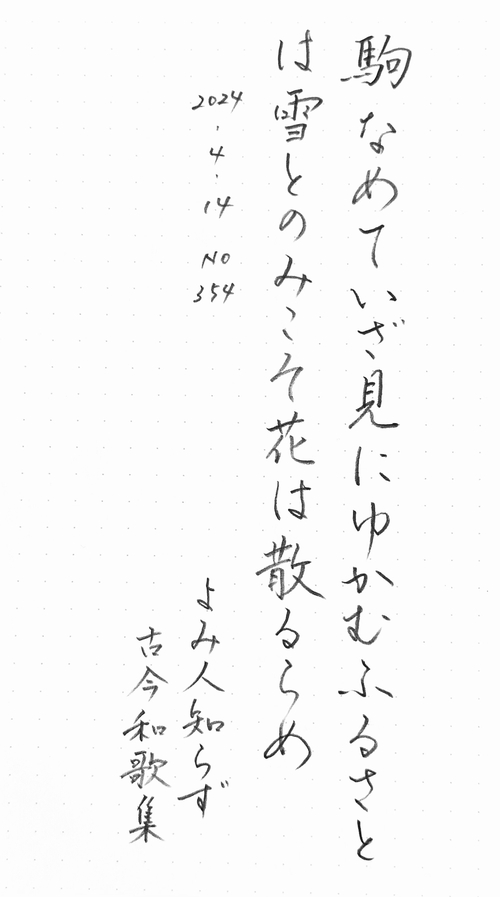 駒なめていざ見にゆかむふるさと
は雪とのみこそ花は散るらめ
2024.4.14 NO354
よみ人知らず
古今和歌集